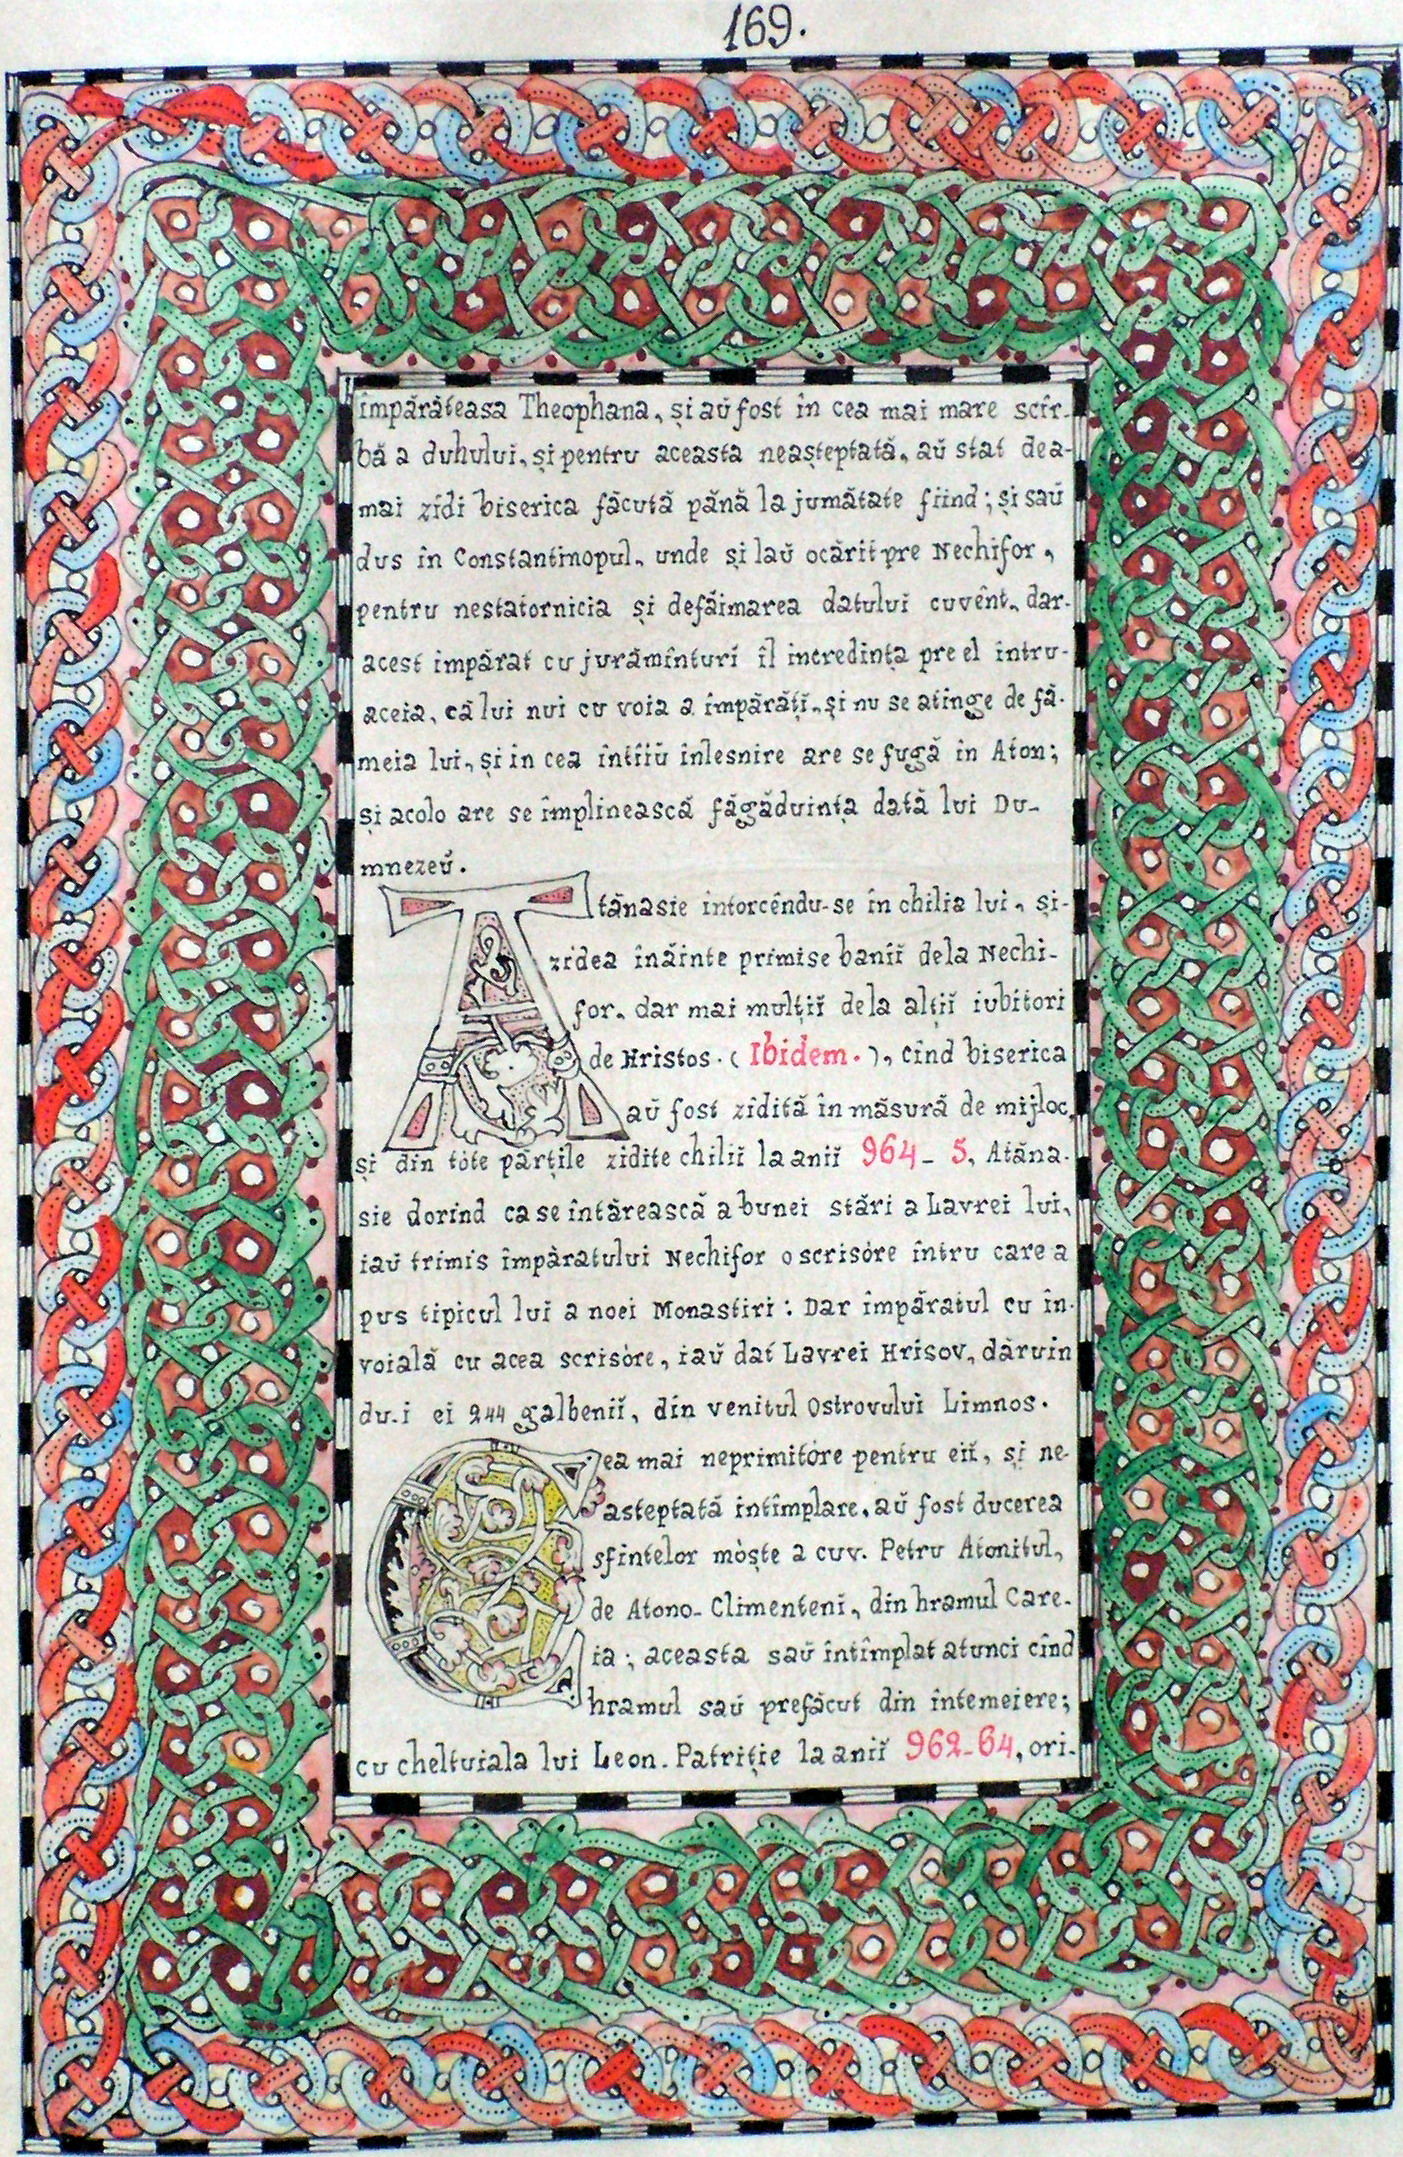 169.
împărăteasa Theophana, și aŭ fost în cea mai mare scîr-
bă a duhului, și pentru aceasta neașteptată, aŭ stat dea-
mai zidi biserica făcută pănă la jumătate fiind; și saŭ
dus în Constantinopul, unde și laŭ ocărit pre Nechifor,
pentru nestatornicia și defăimarea datului cuvênt, dar-
acest împărat cu jurămînturi îl incredința pre el intru-
aceia, că lui nui cu voia a împărăți, și nu se atinge de fă-
meia lui, și in cea întîiŭ inlesnire are se fugă în Aton;
și acolo are se împlinească făgăduința dată lui Du-
mnezeŭ.
Atănasie intorcêndu-se în chilia lui, și-
zidea înăinte primise banii dela Nechi-
for, dar mai mulții dela alții iubitori
de Hristos. (Ibidem.), cînd biserica
aŭ fost zidită în măsură de mijloc,
și din tóte părțile zidite chilii la anii 964-5, Atăna-
sie dorind ca se întărească a bunei stări a Lavrei lui,
iaŭ trimis împăratului Nechifor o scrisóre întru care a
pus tipicul lui a noei Monastiri: Dar împăratul cu în-
voială cu acea scrisóre, iaŭ dat Lavrei Hrisov, dăruin
du-i ei 244 galbenii, din venitul Ostrovului Limnos.
Cea mai neprimitóre pentru eii, și ne-
așteptată intîmplare, aŭ fost ducerea
sfintelor móște a cuv. Petru Atonitul,
de Atono-Climenteni, din hramul Care-
ia; aceasta saŭ întîmplat atunci cînd
hramul saŭ prefăcut din întemeiere;
cu cheltuiala lui Leon. Patriție la anii 962-64, ori-